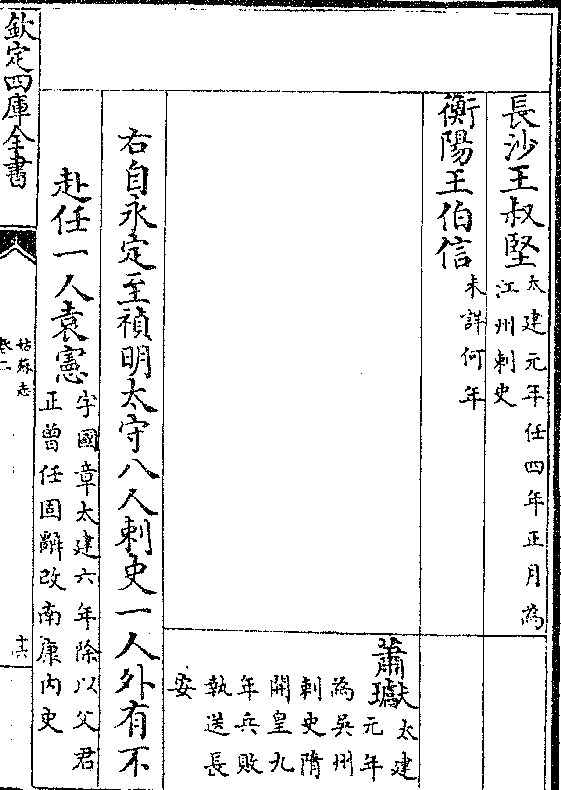 長沙王叔堅
太建元年任四年正月為
江州刺史
衡陽王伯信
未詳何年
蕭瓛
太建
元年
為吳州
刺史隋
開皇九
年兵敗
執送長
安
右自永定至禎明太守八人刺史一人外有不
赴任一人袁憲
字國章太建六年除以父君
正曾任固辭改南康内史
欽定四庫全書
姑蘇志
卷二